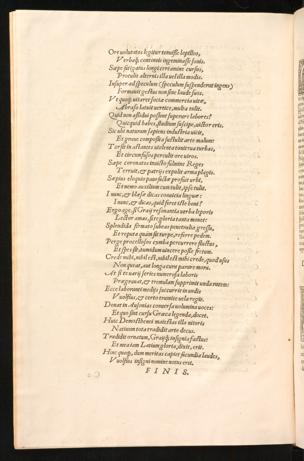 Ore volutatos legitur tenuisse lapillos,
Verbaq; contentis ingeminasse sonis.
Sæpe fatigatus longi certamine cursus,
Protulit alternis illa vel illa modis.
Insuper ad speculum (speculum suspenderat ingens)
Formavit gestus non sine laude suos.
Utq; vitaret fœtæ commercia vitæ,
Abraso latuit vertice, multa tulit.
Quid non assidui possunt superare labores?
Quicquid habes, studium suscipe, victor eris.
Sic ubi naturam sapiens industria vicit,
Et prope composita facta est arte malum:
Torsit in actantes violenta tonitrua turbas,
Et circumfusos perculit ore viros.
Sæpe coronatos invicto fulmine Reges
Terruit, & patrijs expulit arma plagis.
Sæpius eloquio pauefactæ profuit urbi,
Et nemo auxilium cum tulit, ipse tulit.
I nunc, & blæsæ dicas convicia linguæ:
I nunc, & dicas, quid feret iste boni?
Ergo age, si Graij resonantia verba leporis
Lector amas, sit gloria tanta memor:
Splendida fermato subeas penetralia gressu,
Et reputa quàm sit turpe, referre pedem.
Perge procellosos cymba percurrere fluctus,
Et spes est, tumidum vincere posse fretum.
Crede mihi, nihil est, nihil est mihi crede, quod usus
Non queat, aut longa cura parare mora.
At si te varij series numerosa laboris
Prægravat, & tremulam supprimit unda ratem:
Ecce laboranti medijs succurrit in undis
Vuolfius, & certo tramite vela regit.
Donat in Ausonias conversa volumina voces:
Et quo sint cursu Græca legenda, docet.
Huic Demosthenis maiestas illa nitoris
Nativum tota tradidit arte decus.
Tradidit ornatum, Graijsq; insignia factus:
Et mea iam Latium gloria, dixit, erit.
Hinc quoq;, dum meritas capiet facundia laudes,
Vuolfius insigni nomine notus erit.
FINIS.